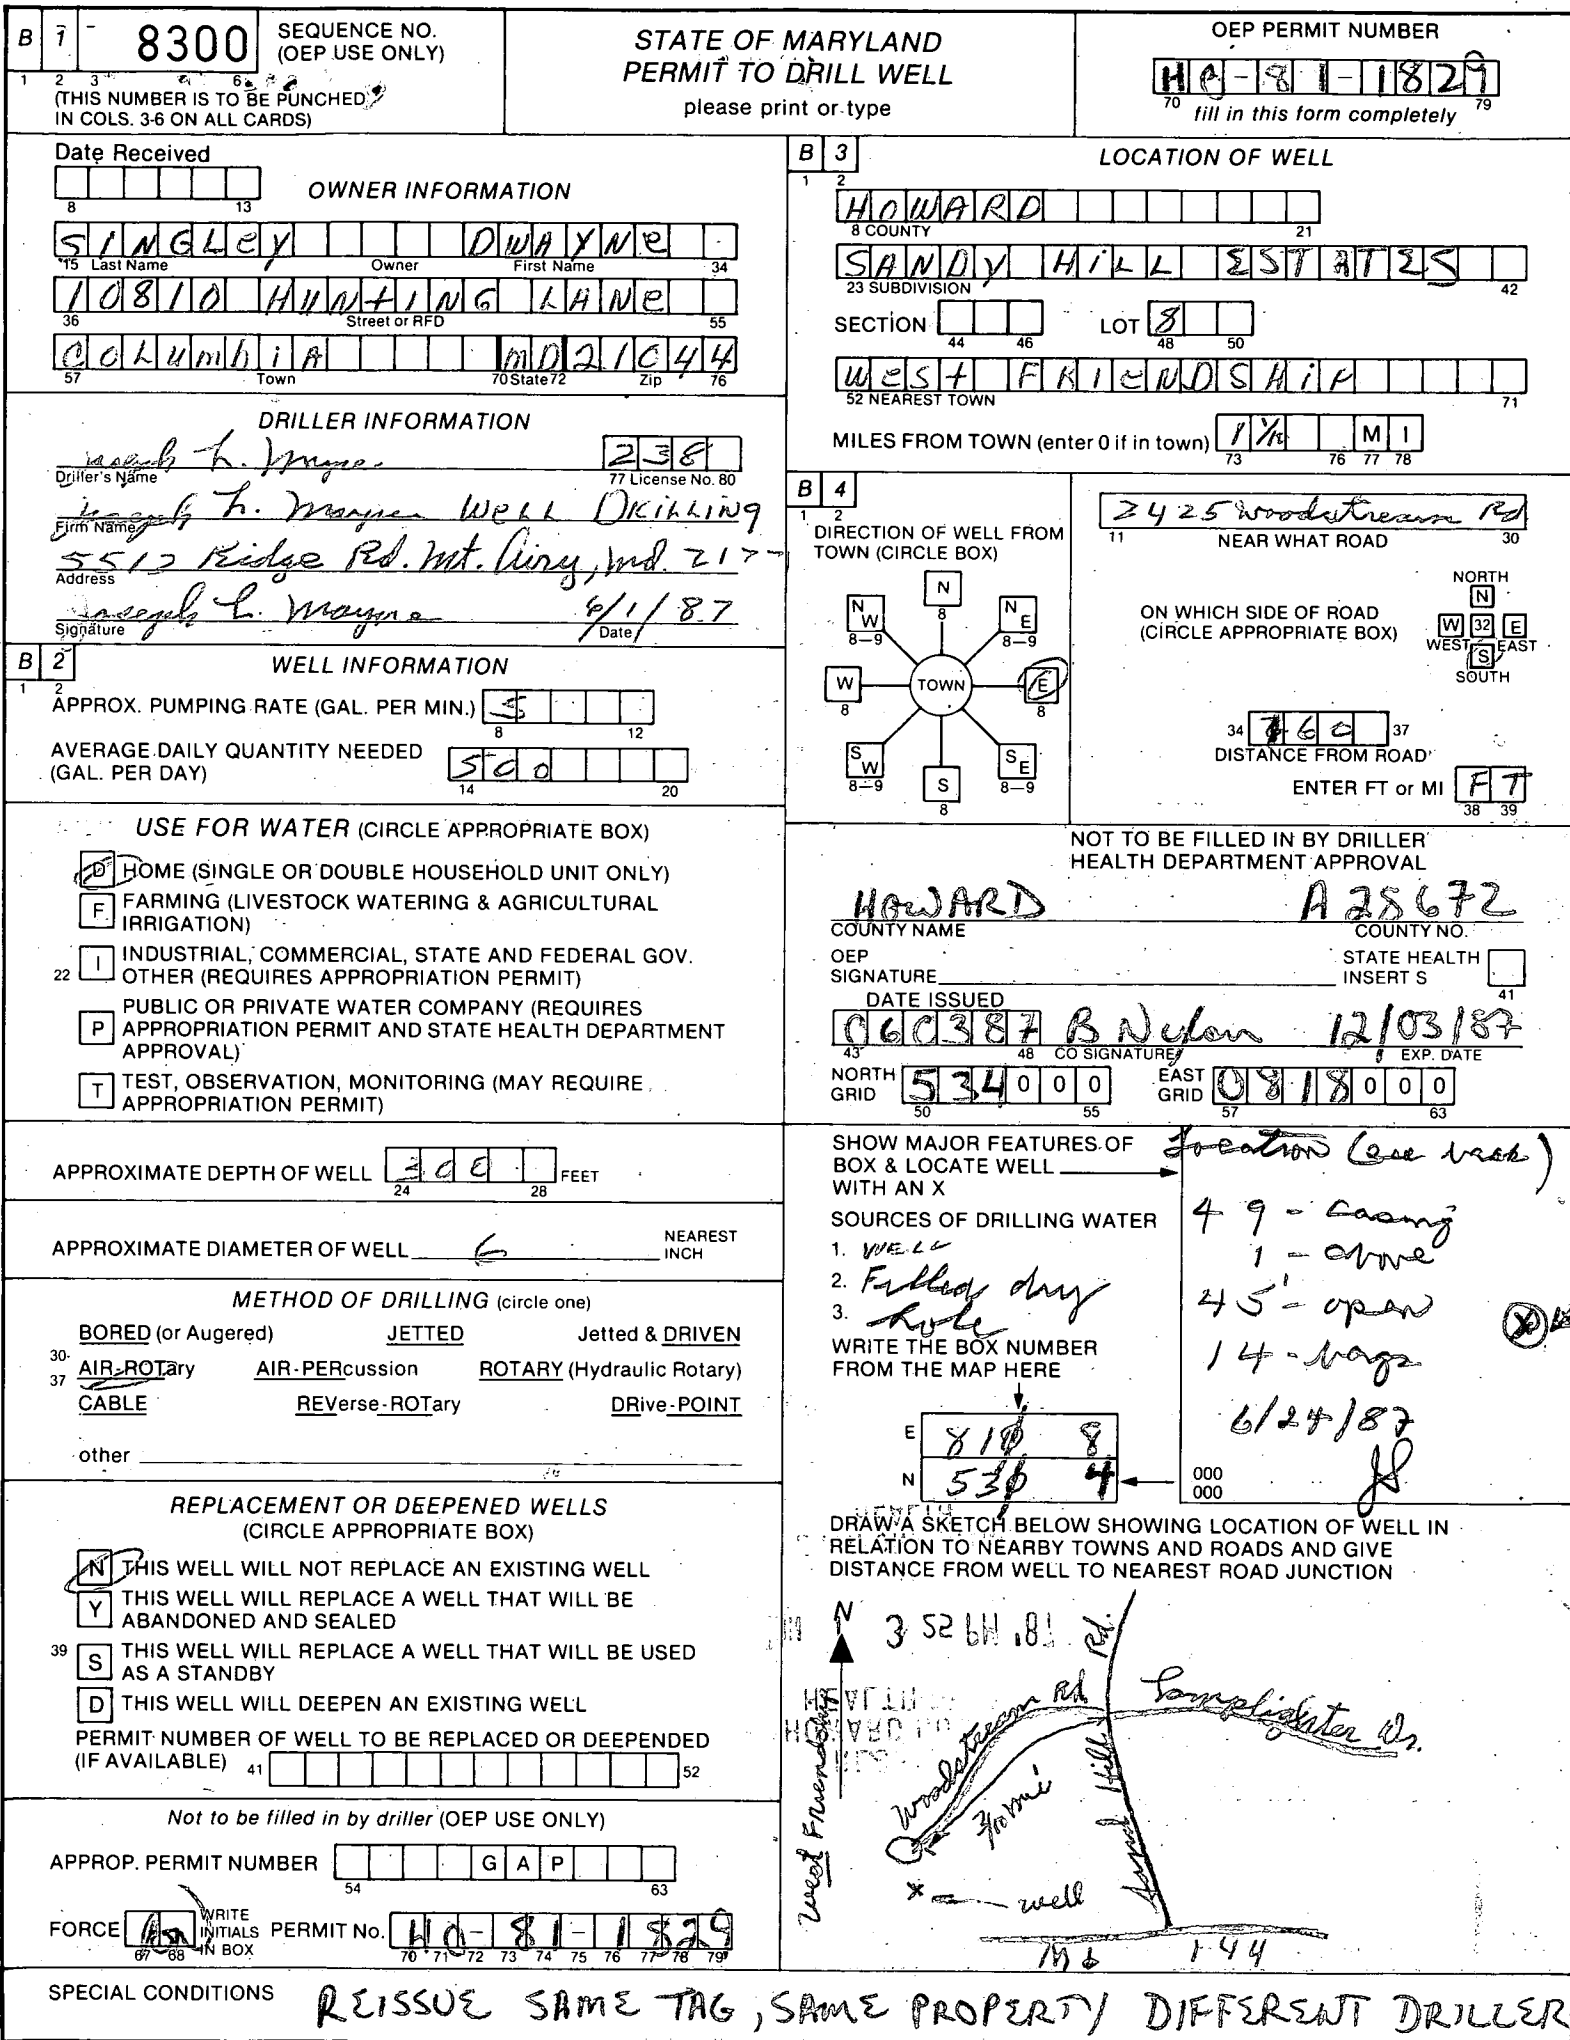 B 1 8300 SEQUENCE NO. (OEP USE ONLY)
1 2 3 6
(THIS NUMBER IS TO BE PUNCHED IN COLS. 3-6 ON ALL CARDS)
STATE OF MARYLAND
PERMIT TO DRILL WELL
please print or type
OEP PERMIT NUMBER
HO-81-1829
70 79
fill in this form completely
Date Received
8 13
OWNER INFORMATION
SINGLEY DWAYNE
15 Last Name Owner First Name 34
10810 HUNTING LANE
36 Street or RFD 55
COLUMBIA MD 21044
57 Town 70 State 72 Zip 76
DRILLER INFORMATION
Joseph L. Mayne 238
Driller's Name 77 License No. 80
Joseph L. Mayne WELL DRILLING
Firm Name
5512 Ridge Rd. Mt. Airy, Md. 217
Address
Joseph L. Mayne 6/1/87
Signature Date
B 2 WELL INFORMATION
1 2
APPROX. PUMPING RATE (GAL. PER MIN.) 5
8 12
AVERAGE DAILY QUANTITY NEEDED (GAL. PER DAY) 500
14 20
USE FOR WATER (CIRCLE APPROPRIATE BOX)
D HOME (SINGLE OR DOUBLE HOUSEHOLD UNIT ONLY)
F FARMING (LIVESTOCK WATERING & AGRICULTURAL IRRIGATION)
22 I INDUSTRIAL, COMMERCIAL, STATE AND FEDERAL GOV. OTHER (REQUIRES APPROPRIATION PERMIT)
P PUBLIC OR PRIVATE WATER COMPANY (REQUIRES APPROPRIATION PERMIT AND STATE HEALTH DEPARTMENT APPROVAL)
T TEST, OBSERVATION, MONITORING (MAY REQUIRE APPROPRIATION PERMIT)
APPROXIMATE DEPTH OF WELL 300 FEET
24 28
APPROXIMATE DIAMETER OF WELL 6 NEAREST INCH
METHOD OF DRILLING (circle one)
BORED (or Augered) JETTED Jetted & DRIVEN
30-37 AIR-ROTary AIR-PERcussion ROTARY (Hydraulic Rotary)
CABLE REVerse-ROTary DRive-POINT
other
REPLACEMENT OR DEEPENED WELLS
(CIRCLE APPROPRIATE BOX)
N THIS WELL WILL NOT REPLACE AN EXISTING WELL
Y THIS WELL WILL REPLACE A WELL THAT WILL BE ABANDONED AND SEALED
39 S THIS WELL WILL REPLACE A WELL THAT WILL BE USED AS A STANDBY
D THIS WELL WILL DEEPEN AN EXISTING WELL
PERMIT NUMBER OF WELL TO BE REPLACED OR DEEPENED
(IF AVAILABLE) 41 52
Not to be filled in by driller (OEP USE ONLY)
APPROP. PERMIT NUMBER G A P
54 63
FORCE WRITE INITIALS IN BOX PERMIT No. HO-81-1829
67 68 70 71 72 73 74 75 76 77 78 79
B 3 LOCATION OF WELL
1 2
HOWARD
8 COUNTY 21
SANDY HILL ESTATES
23 SUBDIVISION 42
SECTION LOT 8
44 46 48 50
WEST FRIENDSHIP
52 NEAREST TOWN 71
MILES FROM TOWN (enter 0 if in town) 1 1/2 M I
73 76 77 78
B 4
1 2
DIRECTION OF WELL FROM TOWN (CIRCLE BOX)
N
8
NW NE
8-9 8-9
W TOWN E
8 8
SW SE
8-9 8-9
S
8
2425 Woodstream Rd
11 NEAR WHAT ROAD 30
ON WHICH SIDE OF ROAD (CIRCLE APPROPRIATE BOX)
NORTH
N
W 32 E
WEST EAST
S
SOUTH
34 760 37
DISTANCE FROM ROAD
ENTER FT or MI F T
38 39
NOT TO BE FILLED IN BY DRILLER
HEALTH DEPARTMENT APPROVAL
HOWARD A 28672
COUNTY NAME COUNTY NO.
OEP SIGNATURE STATE HEALTH INSERT S
41
DATE ISSUED
060387 B Nylon 12/03/87
43 48 CO SIGNATURE EXP. DATE
NORTH GRID 534000 EAST GRID 0818000
50 55 57 63
SHOW MAJOR FEATURES OF BOX & LOCATE WELL WITH AN X
Location (see back)
49 - casing
1 - above
45' - open
14 - bags
6/24/87
JS
SOURCES OF DRILLING WATER
1. WELL
2. Filled dry
3. hole
WRITE THE BOX NUMBER FROM THE MAP HERE
E 810 8
N 530 4
000
000
DRAW A SKETCH BELOW SHOWING LOCATION OF WELL IN RELATION TO NEARBY TOWNS AND ROADS AND GIVE DISTANCE FROM WELL TO NEAREST ROAD JUNCTION
N
West Friendship
Woodstream Rd
Lamplighter Dr.
Sand Hill Rd.
3/10 mi
x well
Md 144
SPECIAL CONDITIONS REISSUE SAME TAG, SAME PROPERTY DIFFERENT DRILLER